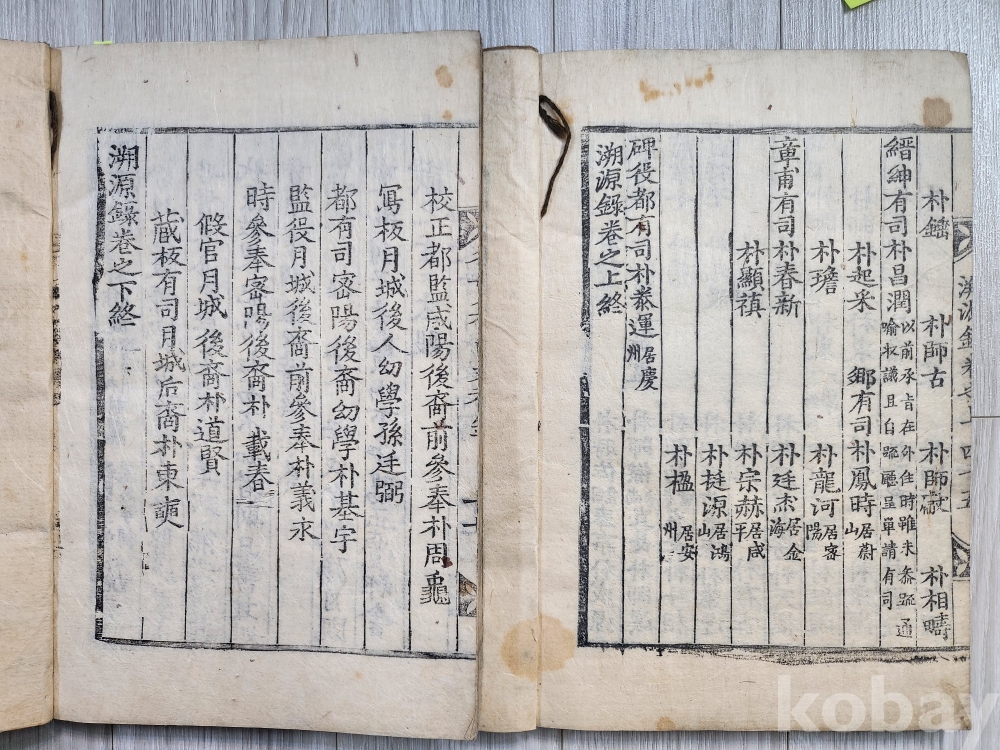 校正都監咸陽後裔前參奉朴周龜
寫板月城後人幼學孫廷弼
都有司密陽後裔幼學朴基宇
監役月城後裔前參奉朴義永
時參奉密陽後裔朴載春
假官月城後裔朴道賢
蔵板有司月城后裔朴東奭
溯源錄卷之下終
溯源錄卷之上
四十五
朴師古
朴師
朴相疇
縉紳有司朴昌潤以前承旨在外住時雖未參疏通
喩收議且台疏廳呈單請有司
朴起采
鄕有司朴鳳時居蔚山
朴瓊
朴龍河居密陽
章甫有司朴春新
朴廷杰居金海
朴顯禛
朴宗赫居咸平
朴挺源居鴻山
朴楹居安州
碑役都有司朴泰運居慶州
溯源錄卷之上終
kobay